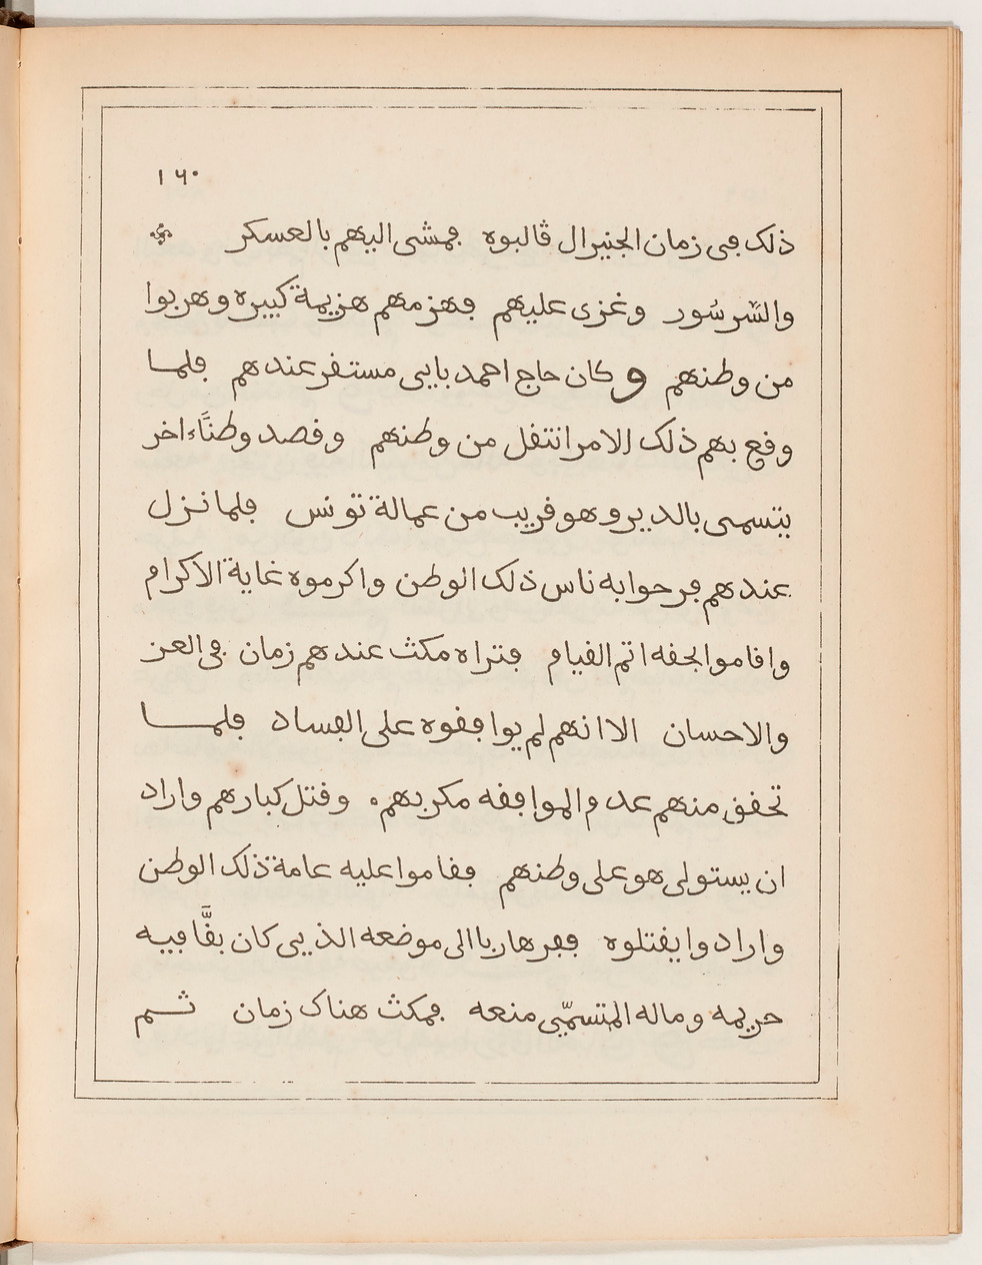 ١٦٠
ذلك في زمان الجنيرال ڤالبوه فمشى اليهم بالعسكر
والشّرسُور وغزى عليهم فهزمهم هزيمة كبيره وهربوا
من وطنهم وكان حاج احمد بايى مستقر عندهم فلما
وقع بهم ذلك الامر انتقل من وطنهم وقصد وطنًاء اخر
يتسمى بالدير وهو قريب من عمالة تونس فلما نزل
عندهم فرحوا به ناس ذلك الوطن واكرموه غاية الاكرام
واقاموا بحقه اتم القيام فتراه مكث عندهم زمان في العز
والاحسان الا انهم لم يوافقوه على الفساد فلما
تحقق منهم عدم الموافقه مكر بهم وقتل كبارهم واراد
ان يستولى هو على وطنهم فقاموا عليه عامة ذلك الوطن
وارادوا يقتلوه ففر هاربا الى موضعه الذيى كان بقَّا فيه
حريمه وماله المتسمّيى منعه فمكث هناك زمان ثم